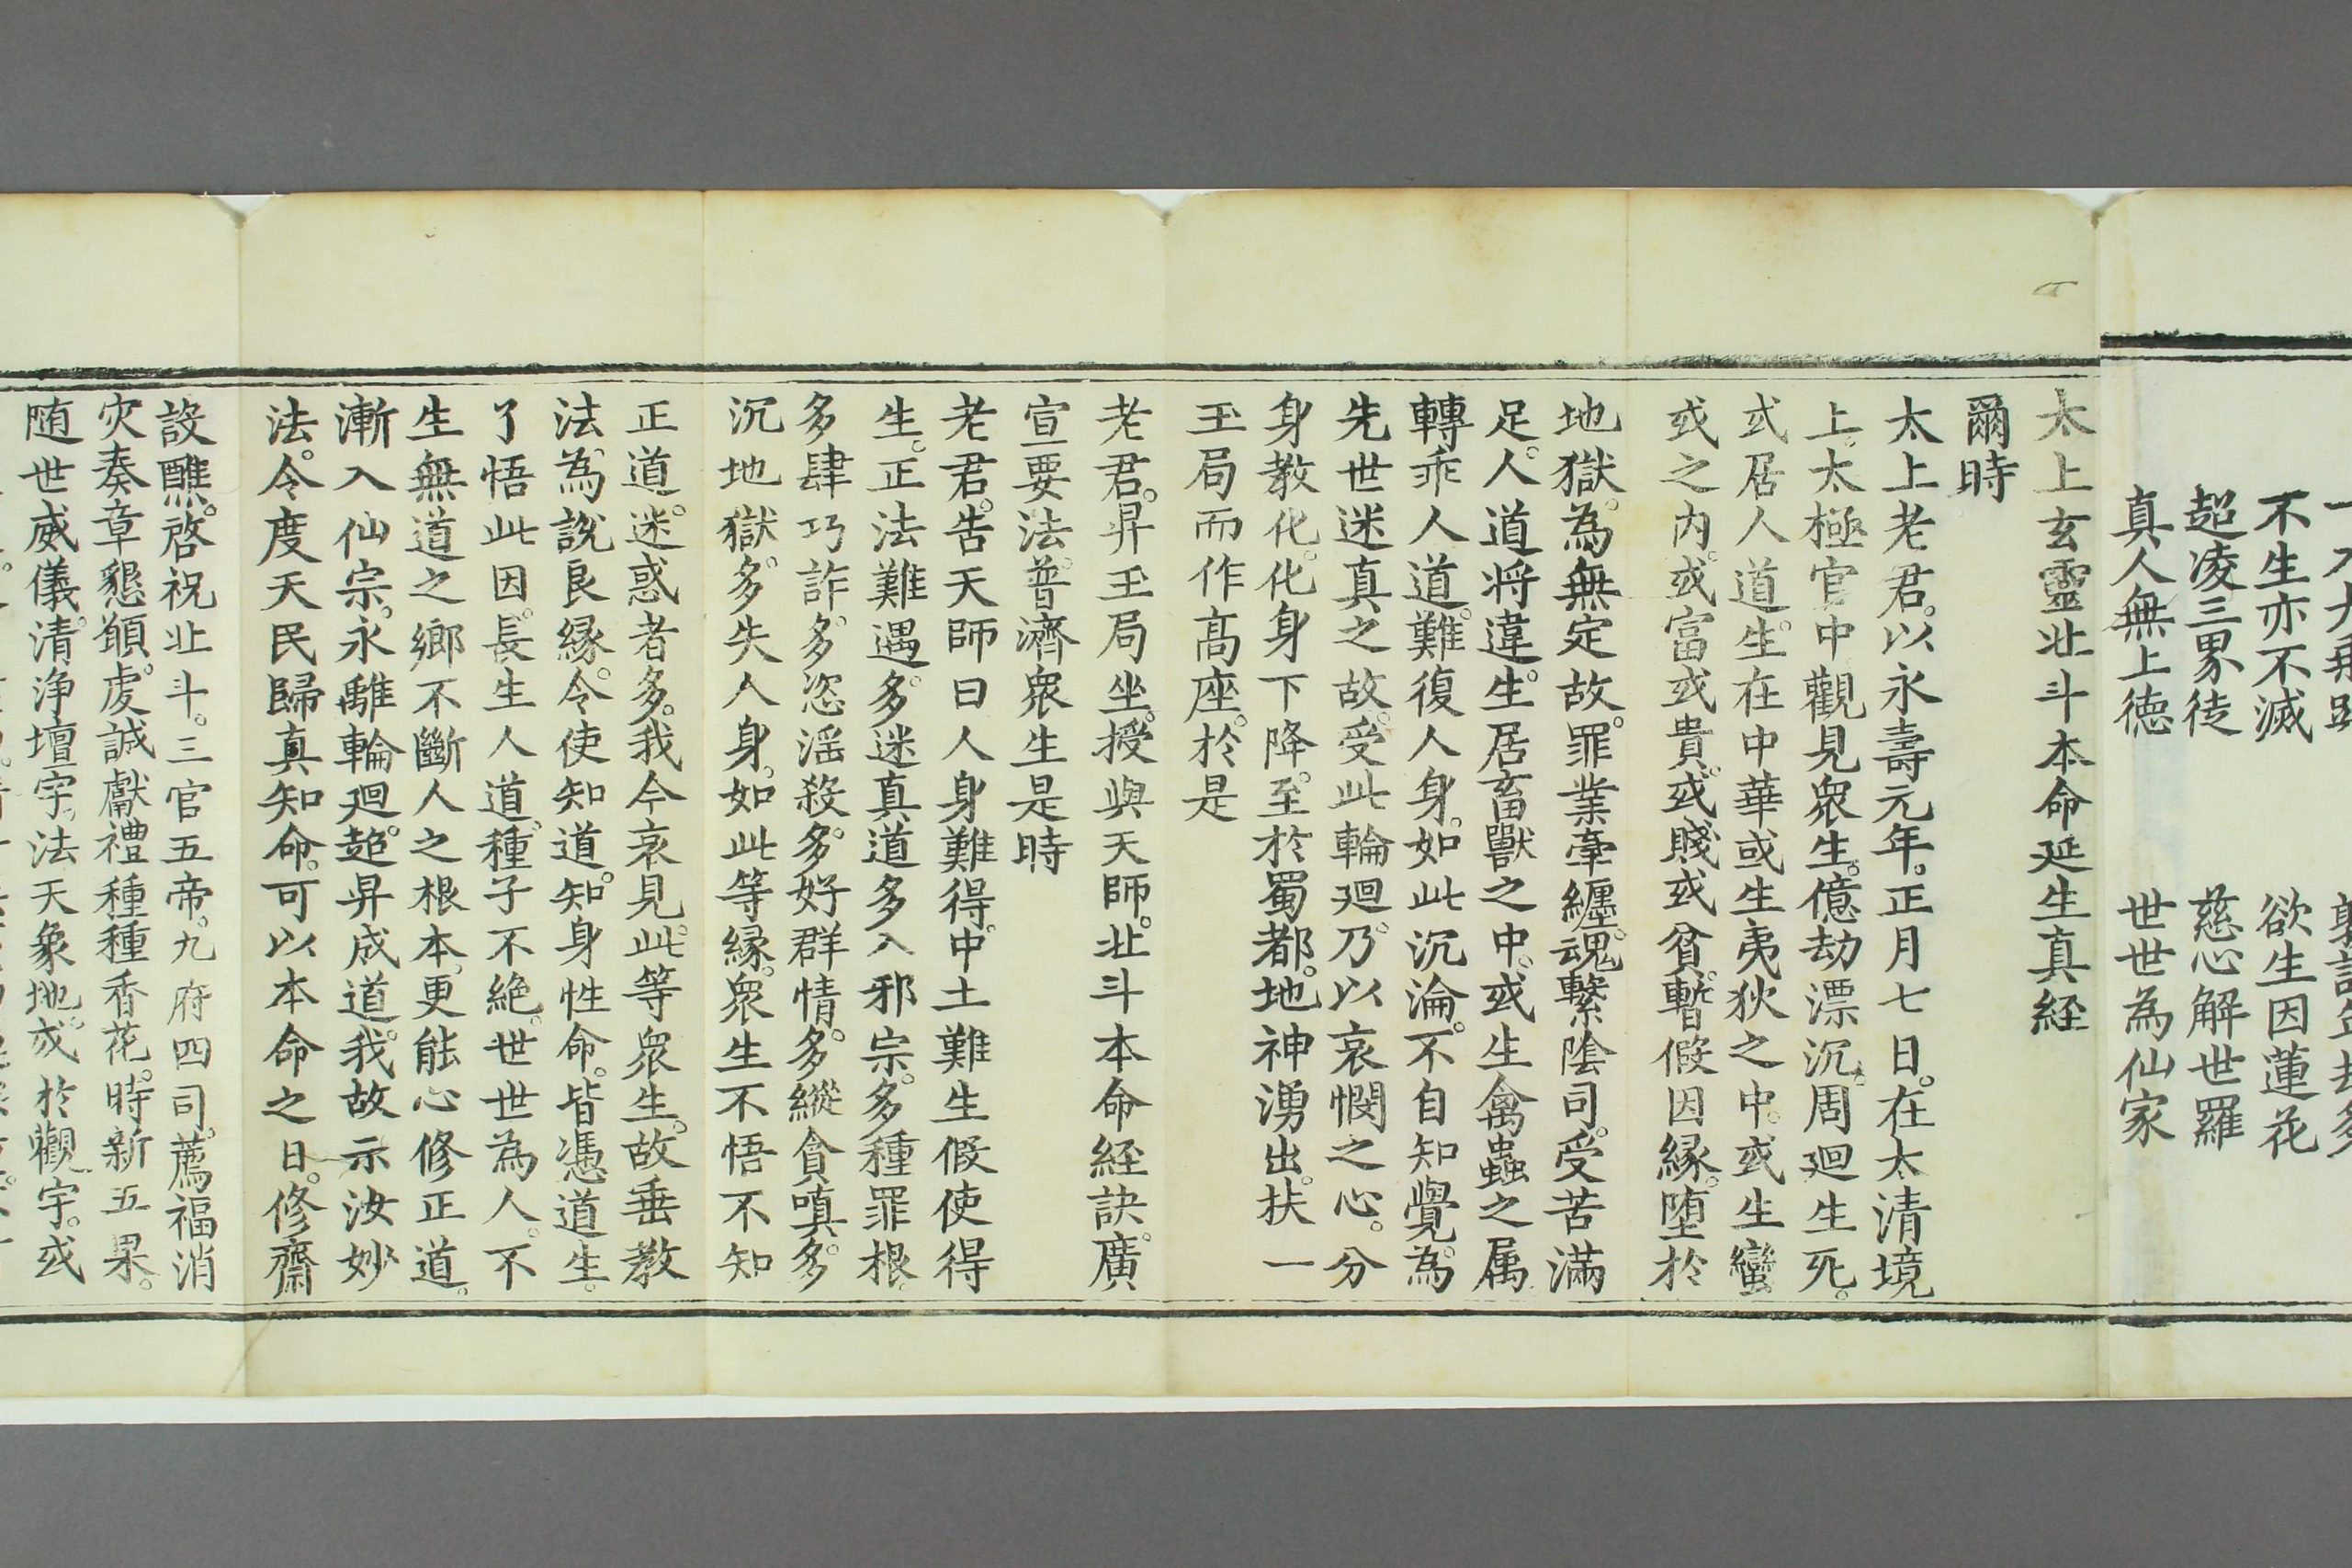 不生亦不滅　欲生因蓮花
超凌三界徒　慈心解世羅
真人無上德　世世為仙家
太上玄靈北斗本命延生真経
爾時
太上老君。以永壽元年。正月七日。在太清境
上。太極宫中觀見衆生。億劫漂沉。周廻生死。
或居人道。生在中華或生夷狄之中。或生蠻
戎之内。或富或貴。或賤或貧。暫假因縁。堕於
地獄。為無定故。罪業牽纏。魂繫陰司。受苦滿
足。人道将違。生居畜獸之中。或生禽蟲之属
轉乖人道。難復人身。如此沉淪。不自知覺。為
先世迷真之故。受此輪廻。乃以哀憫之心。分
身教化。化身下降。至於蜀都。地神湧出。扶一
玉局而作髙座。於是
老君。昇玉局坐。授與天師。北斗本命経訣。廣
宣要法。普濟衆生是時
老君。告天師曰人身難得。中土難生假使得
生。正法難遇。多迷真道多入邪宗。多種罪根。
多肆巧詐。多恣滛殺。多好群情。多縱貪嗔。多
沉地獄。多失人身。如此等縁。衆生不悟不知
正道。迷惑者多。我今哀見此等衆生。故垂教
法。為說良縁。令使知道。知身性命。皆憑道生。
了悟此因。長生人道。種子不絶。世世為人。不
生無道之鄉不斷人之根本。更能心修正道。
漸入仙宗。永離輪廻。超昇成道。我故示汝妙
法。令度天民歸真知命。可以本命之日。修齋
設醮。啓祝北斗。三官五帝。九府四司。薦福消
灾奏章懇願。虔誠獻禮種種香花。時新五果。
随世威儀。清浄壇宇。法天象地。或於觀宇。或